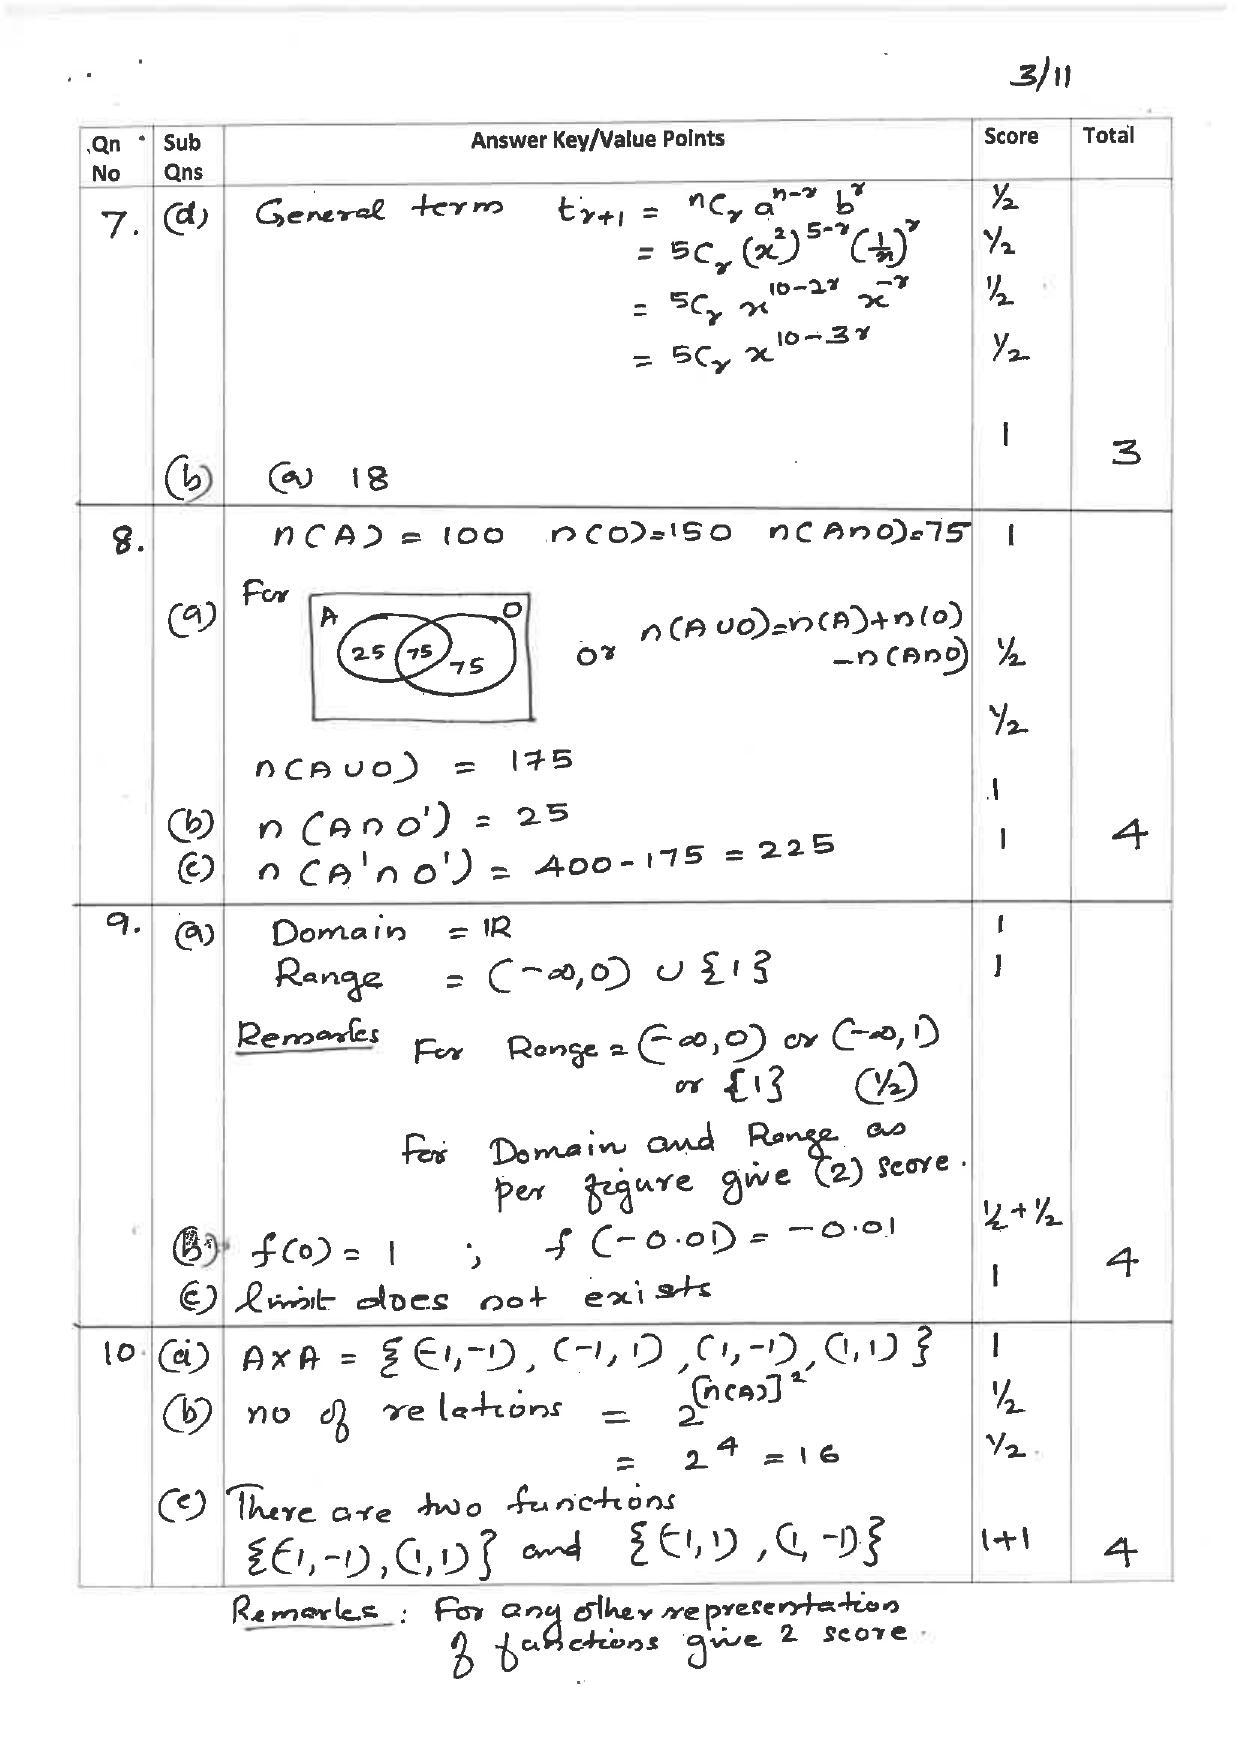 3/11
Qn No Sub Qns Answer Key/Value Points Score Total
7. (a) General term t_{r+1} = nC_r a^{n-r} b^r ½
= 5C_r (x^2)^{5-r} (1/x)^r ½
= 5C_r x^{10-2r} x^{-r} ½
= 5C_r x^{10-3r} ½
1
3
(b) (a) 18
8. n(A) = 100 n(O)=150 n(A∩O)=75 1
(a) For
A O
25 75 75
or n(A∪O)=n(A)+n(O)
-n(A∩O) ½
½
n(A∪O) = 175
1
(b) n(A∩O') = 25
(c) n(A'∩O') = 400-175 = 225 1 4
9. (a) Domain = IR 1
Range = (-∞,0) ∪ {1} 1
Remarks For Range = (-∞,0) or (-∞,1)
or {1} (½)
For Domain and Range as
per figure give (2) score.
(b) f(0) = 1 ; f(-0.01) = -0.01 ½+½
(c) limit does not exists 1 4
10. (a) A×A = {(-1,-1), (-1,1), (1,-1), (1,1)} 1
(b) no of relations = 2^{[n(A)]^2} ½
= 2^4 = 16 ½
(c) There are two functions
{(-1,-1),(1,1)} and {(-1,1),(1,-1)} 1+1 4
Remarks : For any other representation
of functions give 2 score.